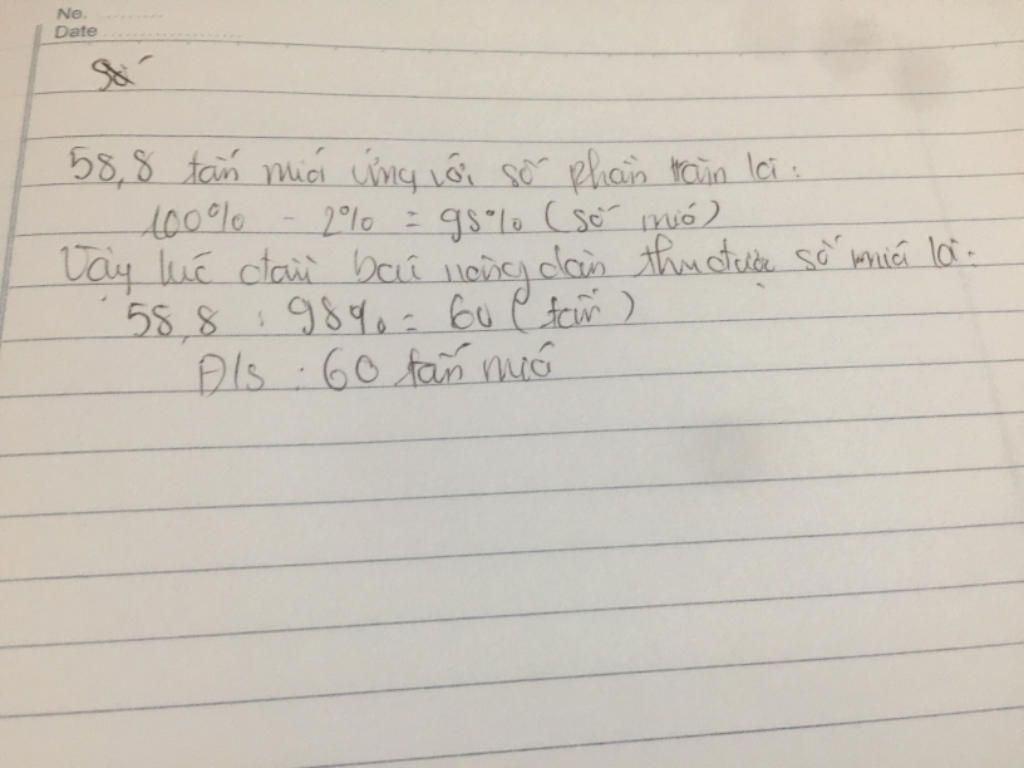 No. ............
Date ........................
Số
58,8 tấn mía ứng với số phần trăm là:
100% - 2% = 98% (số mía)
Vậy lúc đầu bác nông dân thu được số mía là:
58,8 : 98% = 60 (tấn)
Đ/s : 60 tấn mía